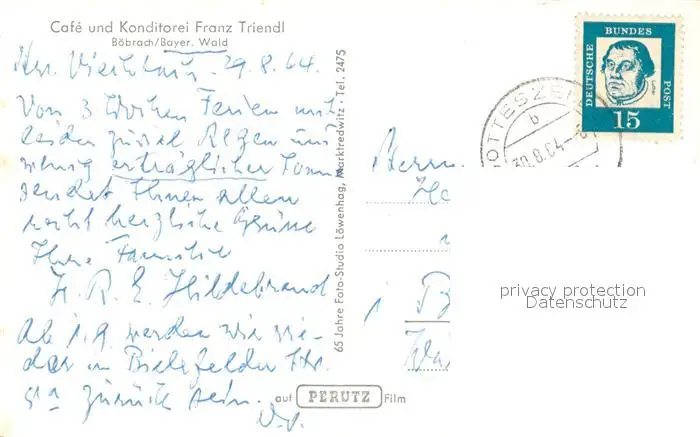 Café und Konditorei Franz Triendl
Böbrach/Bayer. Wald
29.8.64.
Von 3 Wochen Ferien mit
leider zuviel Regen und
wenig erträglicher Sonne
sendet Ihnen allen
recht herzliche Grüße
Ihre Familie
H. R. E. Hildebrand
Ab 1.9. werden wir wie-
der in Bielefelder Str.
zurück sein.
65 Jahre Foto-Studio Löwenhag, Marktredwitz · Tel. 2475
auf PERUTZ Film
Herrn
DEUTSCHE BUNDES POST
Luther
15
GOTTESZELL
b
30.8.64
privacy protection
Datenschutz